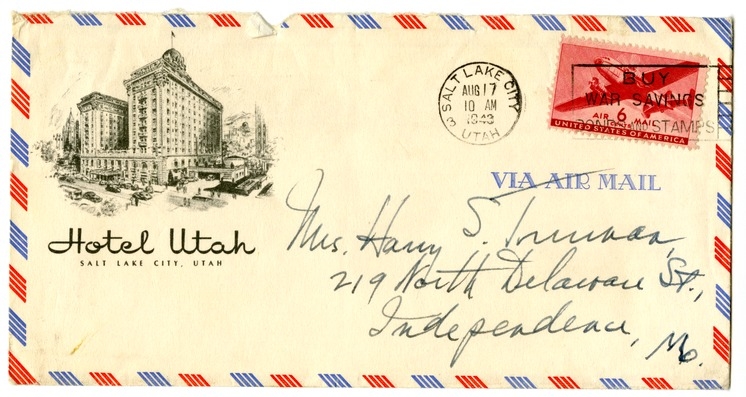 Hotel Utah
SALT LAKE CITY, UTAH
SALT LAKE CITY
AUG 17
10 AM
1943
3 UTAH
BUY
WAR SAVINGS
BONDS AND STAMPS
AIR 6 MAIL
UNITED STATES OF AMERICA
VIA AIR MAIL
Mrs. Harry S. Truman,
219 North Delaware St.,
Independence, Mo.